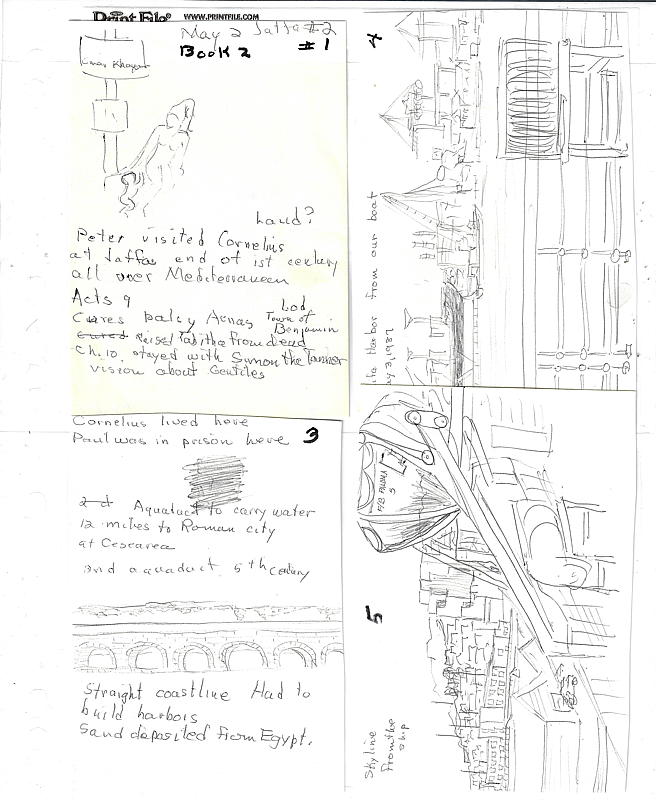 Print File® WWW.PRINTFILE.COM
May 2 Jaffa #2
Book 2 #1
Omar Khayam
Land?
Peter visited Cornelius
at Jaffa end of 1st century
all over Mediterranean
Acts 9
Cures palsy Aenas Lod
Town of
Benjamin
Cured Raised Tabitha from dead
Ch. 10. stayed with Simon the Tanner
vision about Gentiles
Cornelius lived here
Paul was in prison here 3
2 d Aquaduct to carry water
12 miles to Roman city
at Cesearea
2nd aquaduct 5th century
Straight coastline Had to
build harbors
Sand deposited from Egypt.
4
Harbor from our boat
3, 1982
5
Skyline
from the
ship